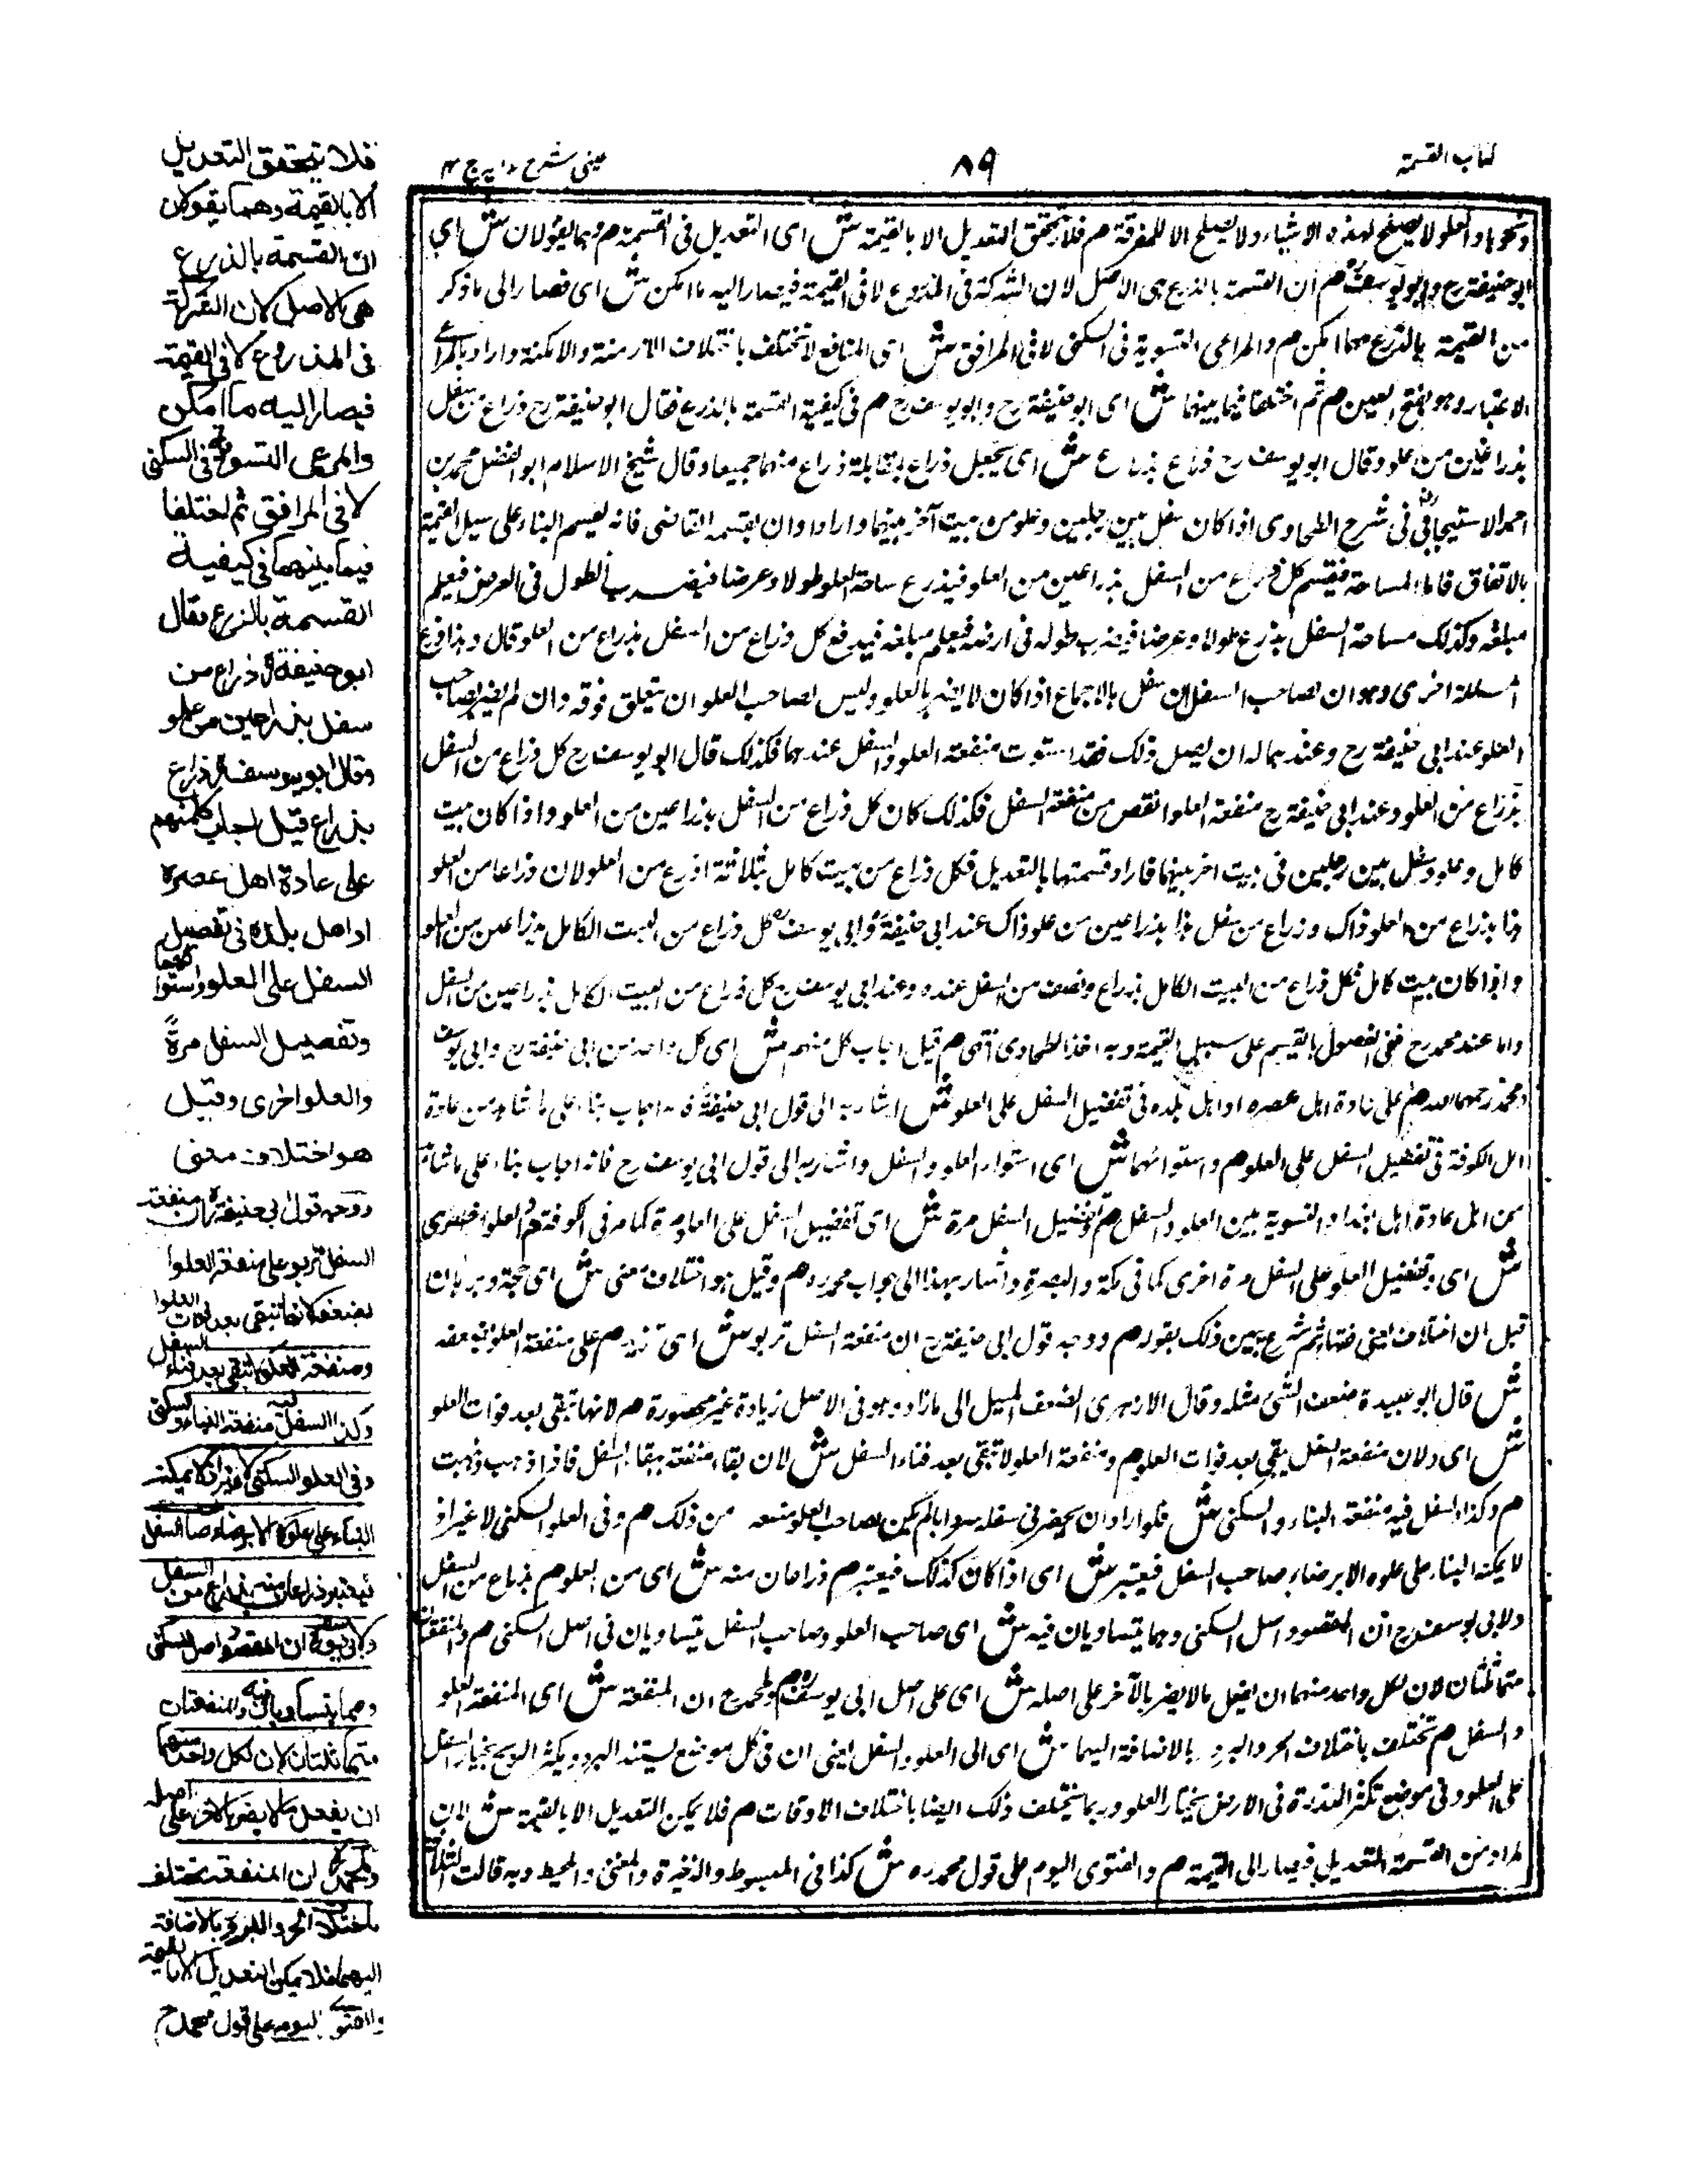 كتاب القسمة
٨٩
عينى شرح هدايه ج ٣
ونحوها والعلو لا يصلح لهذه الاشياء ولا يصلح الا للمفرقة م فلا يتحقق التعديل الا بالقيمة ش اى التعديل فى القسمة م وهما يقولان ش اى
ابو حنيفة رح وابو يوسف رح م ان القسمة بالذرع هى الاصل لان الشركة فى المذروع لا فى القيمة فيصار اليه ما امكن ش اى فصار الى ما ذكر
من القيمة بالذرع مهما امكن م والمراعى التسوية فى السكنى لا فى المرافق ش اى المنافع لا تختلف باختلاف الازمنة والامكنة واراد بالمراعى
الاعتبار وهو بفتح العين م ثم اختلفا فيما بينهما ش اى ابو حنيفة رح وابو يوسف رح م فى كيفية القسمة بالذرع فقال ابو حنيفة رح ذراع من سفل
بذراعين من علو وقال ابو يوسف رح ذراع بذراع ش اى يجعل ذراع بمقابلة ذراع منهما جميعا وقال شيخ الاسلام ابو الفضل محمد بن
احمد الاستيجابى فى شرح الطحاوى اذا كان سفل بين رجلين وعلو من بيت آخر بينهما وارادا وان يقسمه القاضى فانه يقسم البناء على سبيل القيمة
بالاتفاق فاما المساحة فيقسم كل ذراع من السفل بذراعين من العلو فيذرع ساحة العلو طولا وعرضا فيضرب الطول فى العرض فيعلم
مبلغه وكذلك مساحة السفل يذرع طولا وعرضا فيضرب طوله فى عرضه فيعلم مبلغه فيدفع كل ذراع من السفل بذراع من العلو قال وهذا فرع
مسئلة اخرى وهو ان لصاحب السفل ان سفل بالاجماع اذا كان لا يضر بالعلو وليس لصاحب العلو ان يتعلق فوقه وان لم يضر بصاحب
العلو عند ابى حنيفة رح وعندهما له ان يصل ذلك فقد استوت منفعة العلو والسفل عندهما فكذلك قال ابو يوسف رح كل ذراع من السفل
بذراع من العلو وعند ابى حنيفة رح منفعة العلو انقص من منفعة السفل فكذلك كان كل ذراع من السفل بذراعين من العلو واذا كان بيت
كامل وعلو وسفل بين رجلين فى بيت اخر بينهما فارادا قسمتها بالتعديل فكل ذراع من بيت كامل بثلاثة اذرع من العلو لان ذراعا من العلو
هذا بذراع من العلو ذاك وذراع من سفل هذا بذراعين من علو ذاك عند ابى حنيفة وابى يوسف كل ذراع من البيت الكامل بذراعين من العلو
واذا كان بيت كامل فكل ذراع من البيت الكامل بذراع ونصف من السفل عنده وعند ابى يوسف رح كل ذراع من البيت الكامل بذراعين من السفل
واما عند محمد رح ففى الفصول بالقسيم على سبيل القيمة وبه اخذ الطحاوى انتهى م قيل اجاب كل منهم ش اى كل واحد من ابى حنيفة رح وابى يوسف
ومحمد رحمهما الله م على عادة اهل عصره او اهل بلده فى تفضيل السفل على العلو ش اشار به الى قول ابى حنيفة فانه اجاب بناء على ما شاهد من عادة
اهل الكوفة فى تفضيل السفل على العلو م واستوائهما ش اى استواء العلو والسفل واشار به الى قول ابى يوسف رح فانه اجاب بناء على ما شاهد
من اهل عادة اهل بغداد والتسوية بين العلو والسفل م وتفضيل السفل مرة ش اى تفضيل السفل على العلو مرة كما مر فى الكوفة م والعلو اخرى
ش اى وتفضيل العلو على السفل مرة اخرى كما فى مكة والبصرة واشار بهذا الى جواب محمد ره م وقيل هو اختلاف معنى ش اى حجة وبرهان
قبل ان اختلاف ايضى فقها ثم شرع يبين ذلك بقوله م ووجه قول ابى حنيفة رح ان منفعة السفل تربو ش اى تزيد م على منفعة العلو بضعفه
ش قال ابو عبيدة ضعف الشئ مثله وقال الازهرى الضعف المسيل الى ما زاد وهو فى الاصل زيادة غير محصورة م لانها تبقى بعد فوات العلو
ش اى ولان منفعة السفل يبقى بعد فوات العلو م ومنفعة العلو لا تبقى بعد فناء السفل ش لان بقاء منفعته ببقاء السفل فاذا ذهب ذهبت
م وكذا السفل فيه منفعة البناء والسكنى ش فلو اراد ان يحفر فى سفله سردابا لم يكن لصاحب العلو منعه من ذلك م وفى العلو السكنى لا غير اذ
لا يمكنه البناء على علوه الا برضاء صاحب السفل فيعتبر ش اى اذا كان كذلك فيعتبر م ذراعان منه ش اى من العلو م بذراع من السفل
ولابى يوسف رح ان المقصود اصل السكنى وهما يتساويان فيه ش اى صاحب العلو وصاحب السفل يتساويان فى اصل السكنى م والمنفعتان
متماثلتان لان لكل واحد منهما ان يفعل ما لا يضر بالآخر على اصله ش اى على اصل ابى يوسف م ولمحمد رح ان المنفعة ش اى المنفعة العلو
والسفل م تختلف باختلاف الحر والبرد بالاضافة اليهما ش اى الى العلو والسفل ايضى ان فى كل موضع يشتد البرد ويكثر الريح يختار السفل
على العلو وفى موضع تكثر الندوة فى الارض يختار العلو وربما يختلف ذلك ايضا باختلاف الاوقات م فلا يمكن التعديل الا بالقيمة ش لان
المراد من القسمة التعديل فيصار الى القيمة م والفتوى اليوم على قول محمد ره ش كذا فى المبسوط والذخيرة والمغنى والمحيط وبه قالت الثلاثة
فلا يتحقق التعديل
الا بالقيمة وهما يقولان
ان القسمة بالذرع
هى الاصل لان الشركة
فى المذروع لا فى القيمة
فيصار اليه ما امكن
والمرعى التسوية فى السكنى
لا فى المرافق ثم اختلفا
فيما بينهما فى كيفية
القسمة بالذرع فقال
ابو حنيفة رح ذراع من
سفل بذراعين من علو
وقال ابو يوسف رح ذراع
بذراع قيل اجاب كل منهم
على عادة اهل عصره
او اهل بلده فى تفضيل
السفل على العلو واستوائهما
وتفضيل السفل مرةً
والعلو اخرى وقيل
هو اختلاف معنى
ووجه قول ابى حنيفة رح ان منفعة
السفل تربو على منفعة العلو
بضعفه لانها تبقى بعد فوات العلو
ومنفعة العلو لا تبقى بعد فناء السفل
وكذا السفل فيه منفعة البناء والسكنى
وفى العلو السكنى لا غير اذ لا يمكنه
البناء على علوه الا برضاء صاحب السفل
فيعتبر ذراعان منه بذراع من السفل
ولابى يوسف رح ان المقصود اصل السكنى
وهما يتساويان فيه والمنفعتان
متماثلتان لان لكل واحد منهما
ان يفعل ما لا يضر بالآخر على اصله
ولمحمد رح ان المنفعة تختلف
باختلاف الحر والبرد بالاضافة
اليهما فلا يمكن التعديل الا بالقيمة
والفتوى اليوم على قول محمد رح